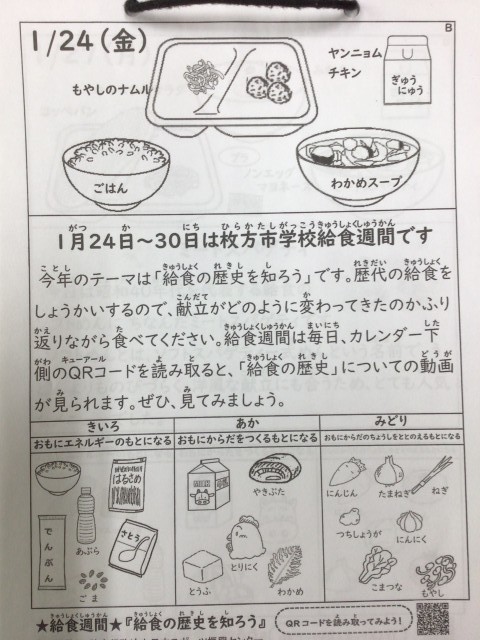 1/24(金)
B
もやしのナムル
ヤンニョム
チキン
ぎゅう
にゅう
ごはん
わかめスープ
1月24日～30日は枚方市学校給食週間です
今年のテーマは「給食の歴史を知ろう」です。歴代の給食を
しょうかいするので、献立がどのように変わってきたのかふり
返りながら食べてください。給食週間は毎日、カレンダー下
側のQRコードを読み取ると、「給食の歴史」についての動画
が見られます。ぜひ、見てみましょう。
きいろ
おもにエネルギーのもとになる
はるさめ
でんぷん
あぶら
さとう
ごま
あか
おもにからだをつくるもとになる
やきぶた
とりにく
とうふ
わかめ
みどり
おもにからだのちょうしをととのえるもとになる
にんじん
たまねぎ
ねぎ
つちしょうが
にんにく
こまつな
もやし
★給食週間★『給食の歴史を知ろう』
QRコードを読み取ってみよう！